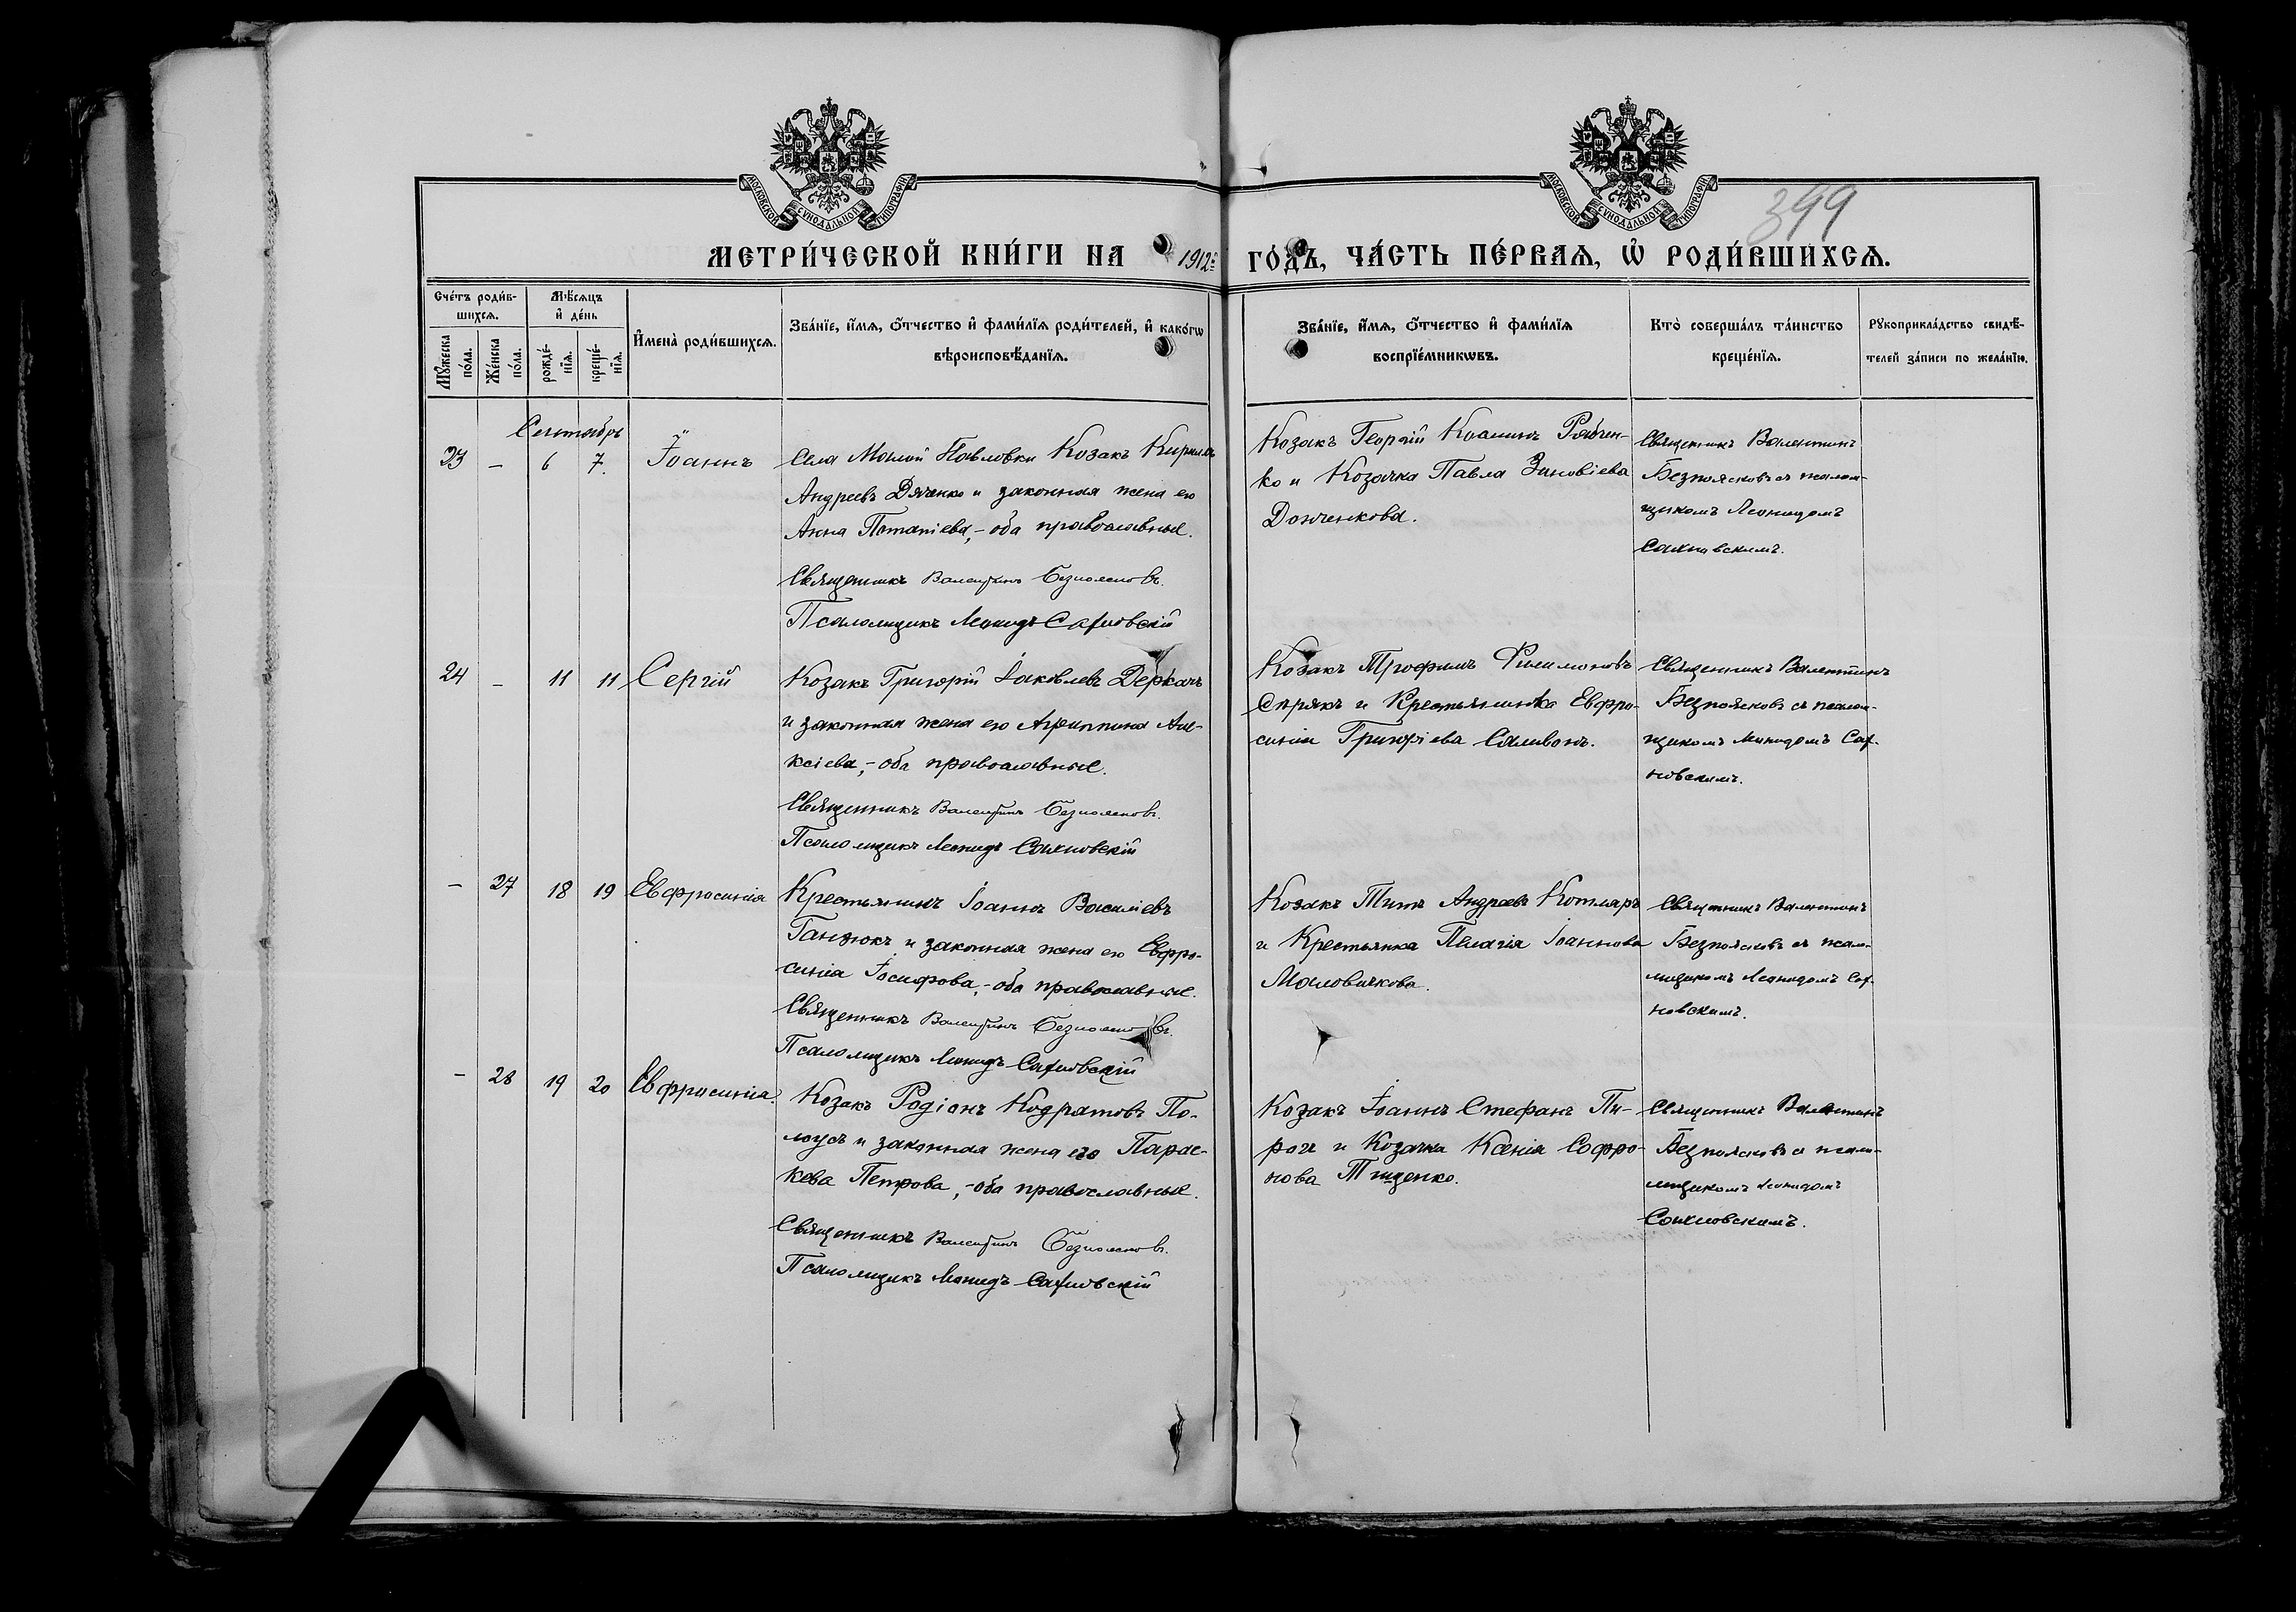 МОСКОВСКОЙ СѴНОДАЛЬНОЙ ТИПОГРАФІИ
МОСКОВСКОЙ СѴНОДАЛЬНОЙ ТИПОГРАФІИ
399
МЕТРИ́ЧЕСКОЙ КНИ́ГИ НА 1912 г. ГО́ДЪ, ЧА́СТЬ ПЕ́РВАѦ, Ѡ҆ РОДИ́ВШИХСѦ.
Сче́тъ роди́вшихсѧ.
Мꙋ́жеска по́ла.
Же́нска по́ла.
Мѣ́сѧцъ и҆ де́нь
рожде́нїѧ.
креще́нїѧ.
И҆мена̀ роди́вшихсѧ.
Зва́нїе, и҆́мѧ, ѻ҆́тчество и҆ фами́лїѧ роди́телей, и҆ како́гѡ
вѣроисповѣ́данїѧ.
Зва́нїе, и҆́мѧ, ѻ҆́тчество и҆ фами́лїѧ
воспрїе́мникѡвъ.
Кто̀ соверша́лъ та́инство
креще́нїѧ.
Рꙋкоприкла́дство свидѣ́-
телей за́писи по жела́нїю.
Сентябрь
23 – 6 7. Іоаннъ
Села Малой Павловки Козакъ Кириллъ
Андреевъ Дяченко и законная жена его
Анна Потапіева, – оба православные.
Священникъ Валентинъ Безпоясковъ.
Псаломщикъ Леонидъ Сахновскій
Козакъ Георгій Рябчен-
ко и Козачка Павла Зиновіева
Донченкова.
Священникъ Валентинъ
Безпоясковъ съ псалом-
щикомъ Леонидомъ
Сахновскимъ.
24 – 11 11 Сергій
Козакъ Григорій Іаковлевъ Деркачъ
и законная жена его Агриппина Але-
ксіева, – оба православные.
Священникъ Валентинъ Безпоясковъ.
Псаломщикъ Леонидъ Сахновскій
Козакъ Трофимъ Филимоновъ
Спрякъ и Крестьянинка Евфро-
синія Григоріева Саливонъ.
Священникъ Валентинъ
Безпоясковъ съ псалом-
щикомъ Леонидомъ Сах-
новскимъ.
– 27 18 19 Евфросинія
Крестьянинъ Іоаннъ Василіевъ
Ганжюкъ и законная жена его Евфро-
синія Іосифова, – оба православные.
Священникъ Валентинъ Безпоясковъ.
Псаломщикъ Леонидъ Сахновскій
Козакъ Титъ Андреевъ Котляръ
и Крестьянка Пелагія Іоаннова
Маловичкова.
Священникъ Валентинъ
Безпоясковъ съ псало-
мщикомъ Леонидомъ Сах-
новскимъ.
– 28 19 20 Евфросинія.
Козакъ Родіонъ Кодратовъ По-
лоусъ и законная жена его Парас-
кева Петрова, – оба православные.
Священникъ Валентинъ Безпоясковъ.
Псаломщикъ Леонидъ Сахновскій
Козакъ Іоаннъ Стефанъ Пи-
рогъ и Козачка Ксенія Софро-
нова Тищенко.
Священникъ Валентинъ
Безпоясковъ съ псало-
мщикомъ Леонидомъ
Сахновскимъ.